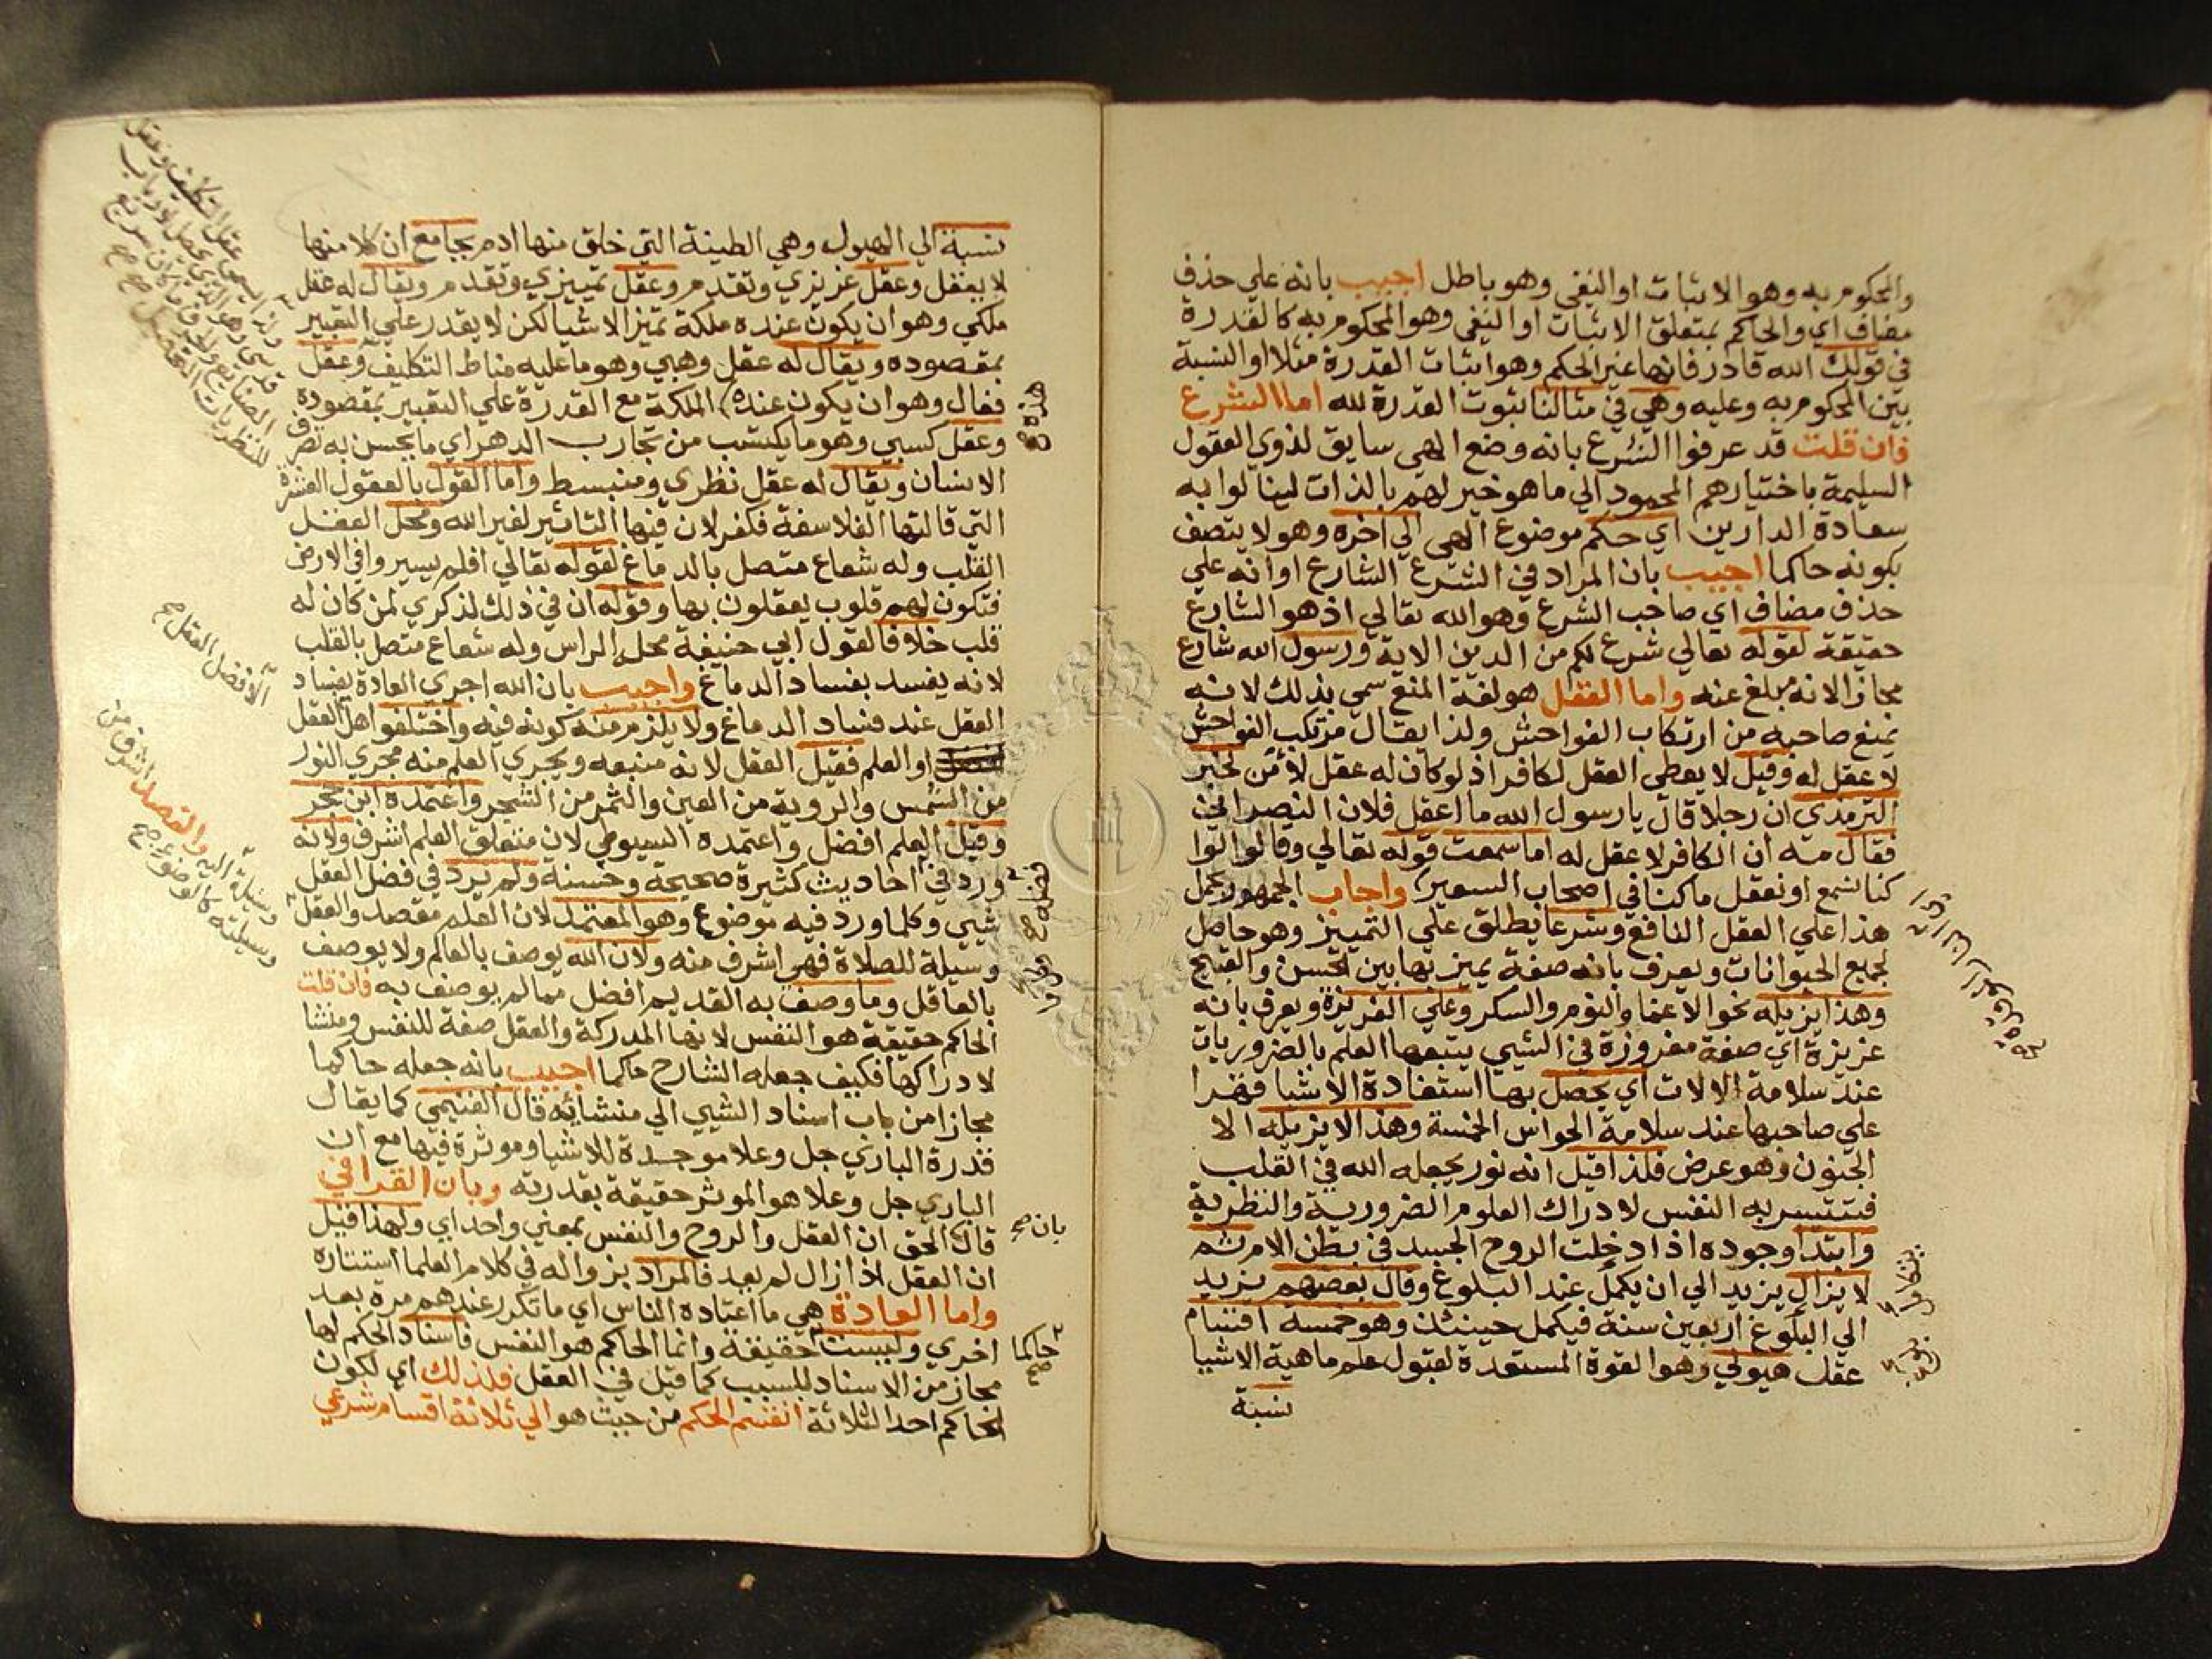 والمحكوم به وهو الاثبات او النفي وهو باطل اجيب بانه علي حذف
مضاف اي والحاكم بمتعلق الاثبات او النفي وهو المحكوم به كالقدرة
في قولك الله قادر فانها غير الحكم وهو اثبات القدرة مثلا او النسبة
بين المحكوم به وعليه وهي في مثالنا ثبوت القدرة لله اما الشرع
فان قلت قد عرفوا الشرع بانه وضع الهي سايق لذوي العقول
السليمة باختيارهم المحمود الي ما هو خير لهم بالذات لينالوا به
سعادة الدارين اي حكم موضوع الهي الي اخره وهو لا يتصف
بكونه حاكما اجيب بان المراد في الشرع الشارع او انه علي
حذف مضاف اي صاحب الشرع وهو الله تعالي اذ هو الشارع
حقيقة لقوله تعالي شرع لكم من الدين الاية ورسول الله شارع
مجازا لانه مبلغ عنه واما العقل هو لغة المنع سمي بذلك لانه
يمنع صاحبه من ارتكاب الفواحش ولذا يقال مرتكب الفواحش
لا عقل له وقيل لا يعطي العقل لكافر اذ لو كان له عقل لأمن لخبر
الترمذي ان رجلا قال يا رسول الله ما اعقل فلان النصراني
فقال مه ان الكافر لا عقل له اما سمعت قوله تعالي وقالوا لو
كنا نسمع او نعقل ما كنا في اصحاب السعير واجاب الجمهور بحمل
هذا علي العقل النافع وشرعا يطلق علي التمييز وهو حاصل
لجميع الحيوانات ويعرف بانه صفة يميز بها بين الحسن والقبيح
وهذا يزيله نحو الاغما والنوم والسكر وعلي الغريزة ويعرف بانه
غريزة اي صفة مغروزة في الشيي يتبعها العلم بالضروريات
عند سلامة الالات اي يحصل بها استفادة الاشيا قهرا
علي صاحبها عند سلامة الحواس الخمسة وهذا لا يزيله الا
الجنون وهو عرض فلذا قيل انه نور يجعله الله في القلب
فتتيسر به النفس لادراك العلوم الضرورية والنظرية
وابتدا وجوده اذا دخلت الروح الجسد في بطن الام ثم
لا يزال يزيد الي ان يكمل عند البلوغ وقال بعضهم يزيد
الي البلوغ اربعين سنة فيكمل حينئذ وهو خمسة اقسام
عقل هيولي وهو القوة المستعدة لقبول علم ماهية الاشيا
نسبة
نسبة الي الهيول وهي الطينة التي خلق منها ادم بجامع ان كلا منها
لا يعقل وعقل غريزي وتقدم وعقل تمييزي وتقدم ويقال له عقل
ملكي وهو ان يكون عنده ملكة تميز الاشيا لكن لا يقدر علي التعبير
بمقصوده ويقال له عقل وهبي وهو ما عليه مناط التكليف وعقل
فعال وهو ان يكون عنده الملكة مع القدرة علي التعبير بمقصوده
هذه
وعقل كسبي وهو ما يكتسب من تجارب الدهر اي ما يحسن به تصرف
الانسان ويقال له عقل نظري ومنبسط واما القول بالعقول العشرة
التي قالتها الفلاسفة فكفر لان فيها التاثير لغير الله ومحل العقل
القلب وله شعاع متصل بالدماغ لقوله تعالي افلم يسيروا في الارض
فتكون لهم قلوب يعقلون بها وقوله ان في ذلك لذكري لمن كان له
قلب خلافا لقول ابي حنيفة محله الراس وله شعاع متصل بالقلب
لانه يفسد بفساد الدماغ واجيب بان الله اجري العادة بفساد
العقل عند فساد الدماغ ولا يلزم منه كونه فيه واختلفوا هل العقل
الافضل العقل صح
او العلم فقيل العقل لانه منبعه ويجري العلم منه مجري النور
من الشمس والروية من العين والثمر من الشجر واعتمده ابن حجر
وقيل العلم افضل واعتمده السيوطي لان متعلق العلم اشرف ولانه
ورد في احاديث كثيرة صحيحة وحسنة ولم يرد في فضل العقل
شيي وكلما ورد فيه موضوع وهو المعتمد لان العلم مقصد والعقل
وسيلة اليه والقصد اشرف من
وسيلته كالوضوء صح
وسيلة للصلاة فهي اشرف منه ولان الله يوصف بالعالم ولا يوصف
بالعاقل وما وصف به القديم افضل مما لم يوصف به فان قلت
الحاكم حقيقة هو النفس لانها المدركة والعقل صفة للنفس ومنشا
لادراكها فكيف جعله الشارح حاكما اجيب بانه جعله حاكما
مجازا من باب اسناد الشيي الي منشائه قال الغنيمي كما يقال
قدرة الباري جل وعلا موجدة للاشيا وموثرة فيها مع ان
الباري جل وعلا هو الموثر حقيقة بقدرته وبان القرافي
قال الحق ان العقل والروح والنفس بمعني واحد اي ولهذا قيل
بان صح
ان العقل اذا زال لم يعد فالمراد بزواله في كلام العلما استتاره
واما العادة هي ما اعتاده الناس اي ما تكرر عندهم مرة بعد
اخري وليست حقيقة وانما الحاكم هو النفس فاسناد الحكم لها
حاكما صح
مجاز من الاسناد للسبب كما قيل في العقل فلذلك اي لكون
الحاكم احد الثلاثة انقسم الحكم من حيث هو الي ثلاثة اقسام شرعي